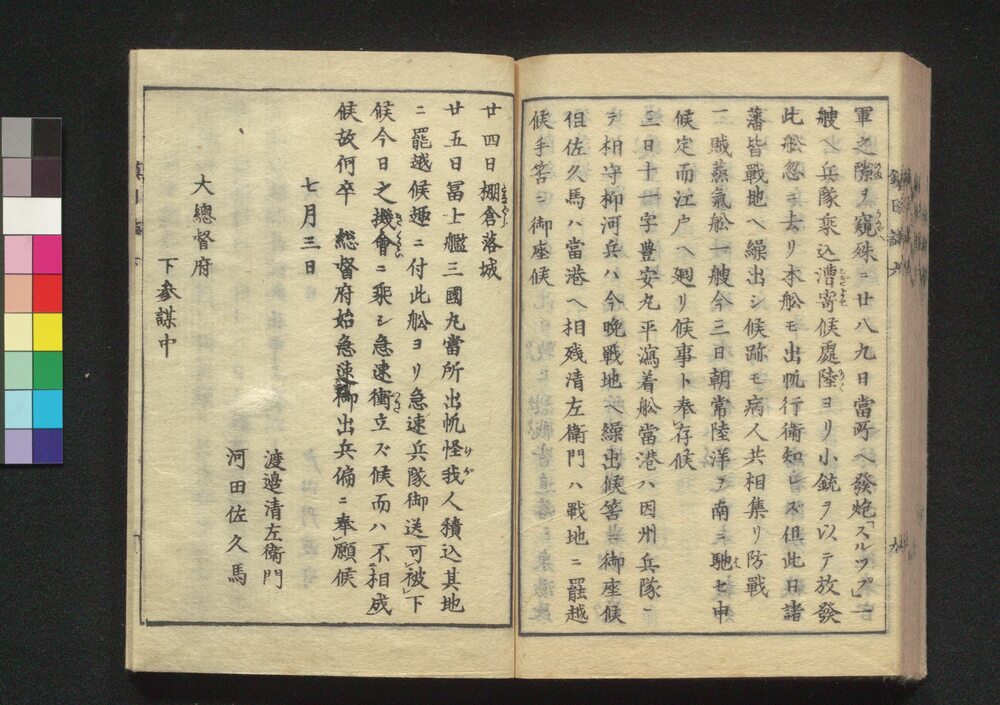 軍之隙ヲ窺殊ニ廿八九日當所ヘ發炮「スルツプ」一
艘ヘ兵隊乗込漕寄候處陸ヨリ小銃ヲ以テ放發
此舩忽チ去リ本舩モ出帆行衛知レズ但此日諸
藩皆戰地ヘ繰出シ候跡モ病人共相集リ防戰
一賊蒸氣舩一艘今三日朝常陸洋ヲ南ニ馳セ申
候定而江戸ヘ廻リ候事ト奉存候
三日十一字豊安丸平瀉着舩當港ハ因州兵隊ニ
テ相守柳河兵ハ今晩戰地ヘ繰出候筈ニ御座候
但佐久馬ハ當港ヘ相残清左衛門ハ戰地ニ罷越
候手筈ニ御座候
廿四日棚倉落城
廿五日冨士艦三國丸當所出帆怪我人積込其地
ニ罷越候趣ニ付此舩ヨリ急速兵隊御送可被下
候今日之機會ニ乘シ急速衝立ズ候而ハ不相成
候故何卒 総督府始急速御出兵偏ニ奉願候
七月三日
渡邉清左衛門
河田佐久馬
大總督府
下參謀中